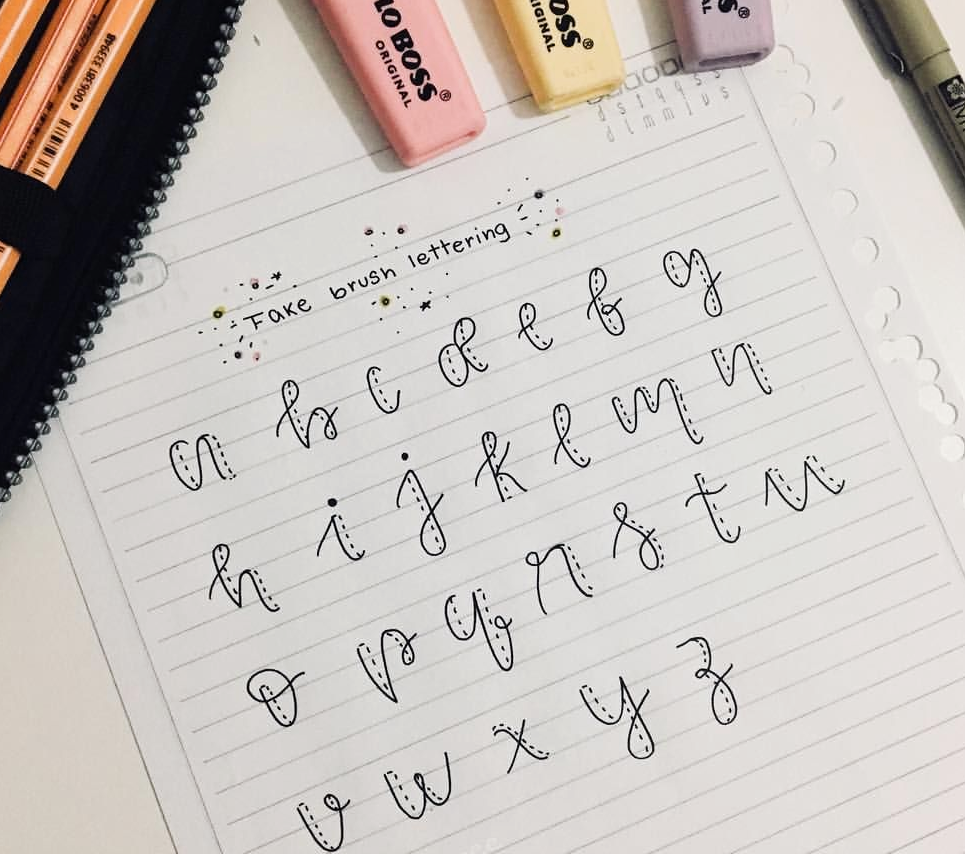 LO BOSS®
ORIGINAL
BOSS®
ORIGINAL
4 006381 333948
Fake brush lettering
a b c d e f g
h i j k l m n
o p q r s t u
v w x y z